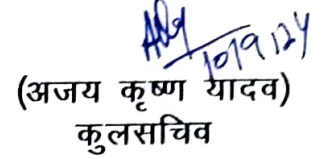 10/9/24
(अजय कृष्ण यादव)
कुलसचिव